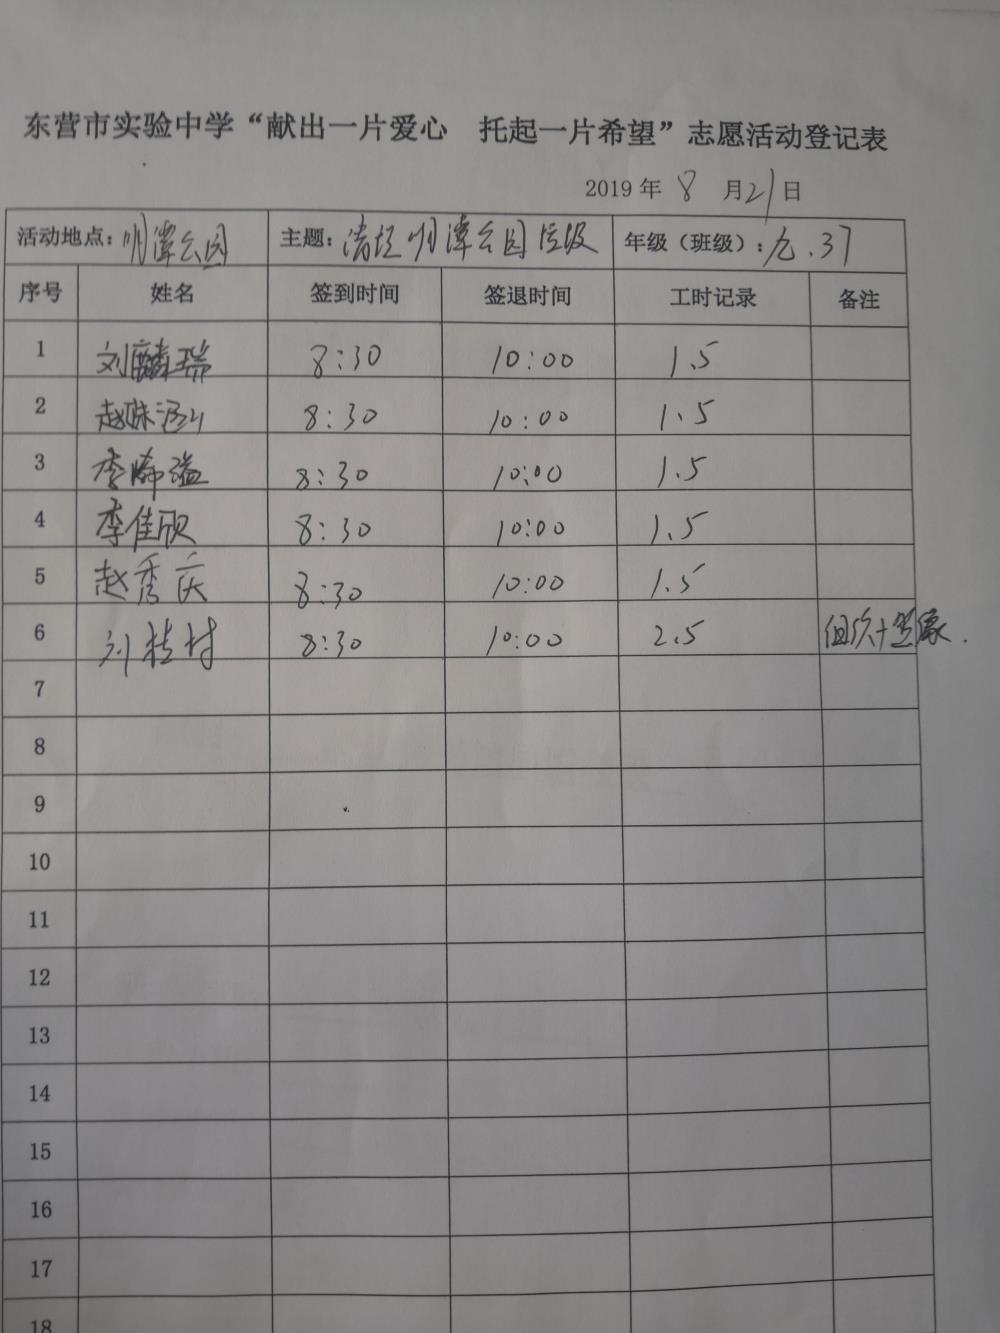 东营市实验中学“献出一片爱心 托起一片希望”志愿活动登记表
2019年 8 月21日
活动地点：明潭公园 主题：清垃明潭公园垃圾 年级（班级）：九.37
序号 姓名 签到时间 签退时间 工时记录 备注
1 刘麟瑞 8:30 10:00 1.5
2 赵 8:30 10:00 1.5
3 李晞溢 8:30 10:00 1.5
4 李佳欣 8:30 10:00 1.5
5 赵秀庆 8:30 10:00 1.5
6 刘桂村 8:30 10:00 2.5 组织+摄像.
7
8
9
10
11
12
13
14
15
16
17
18